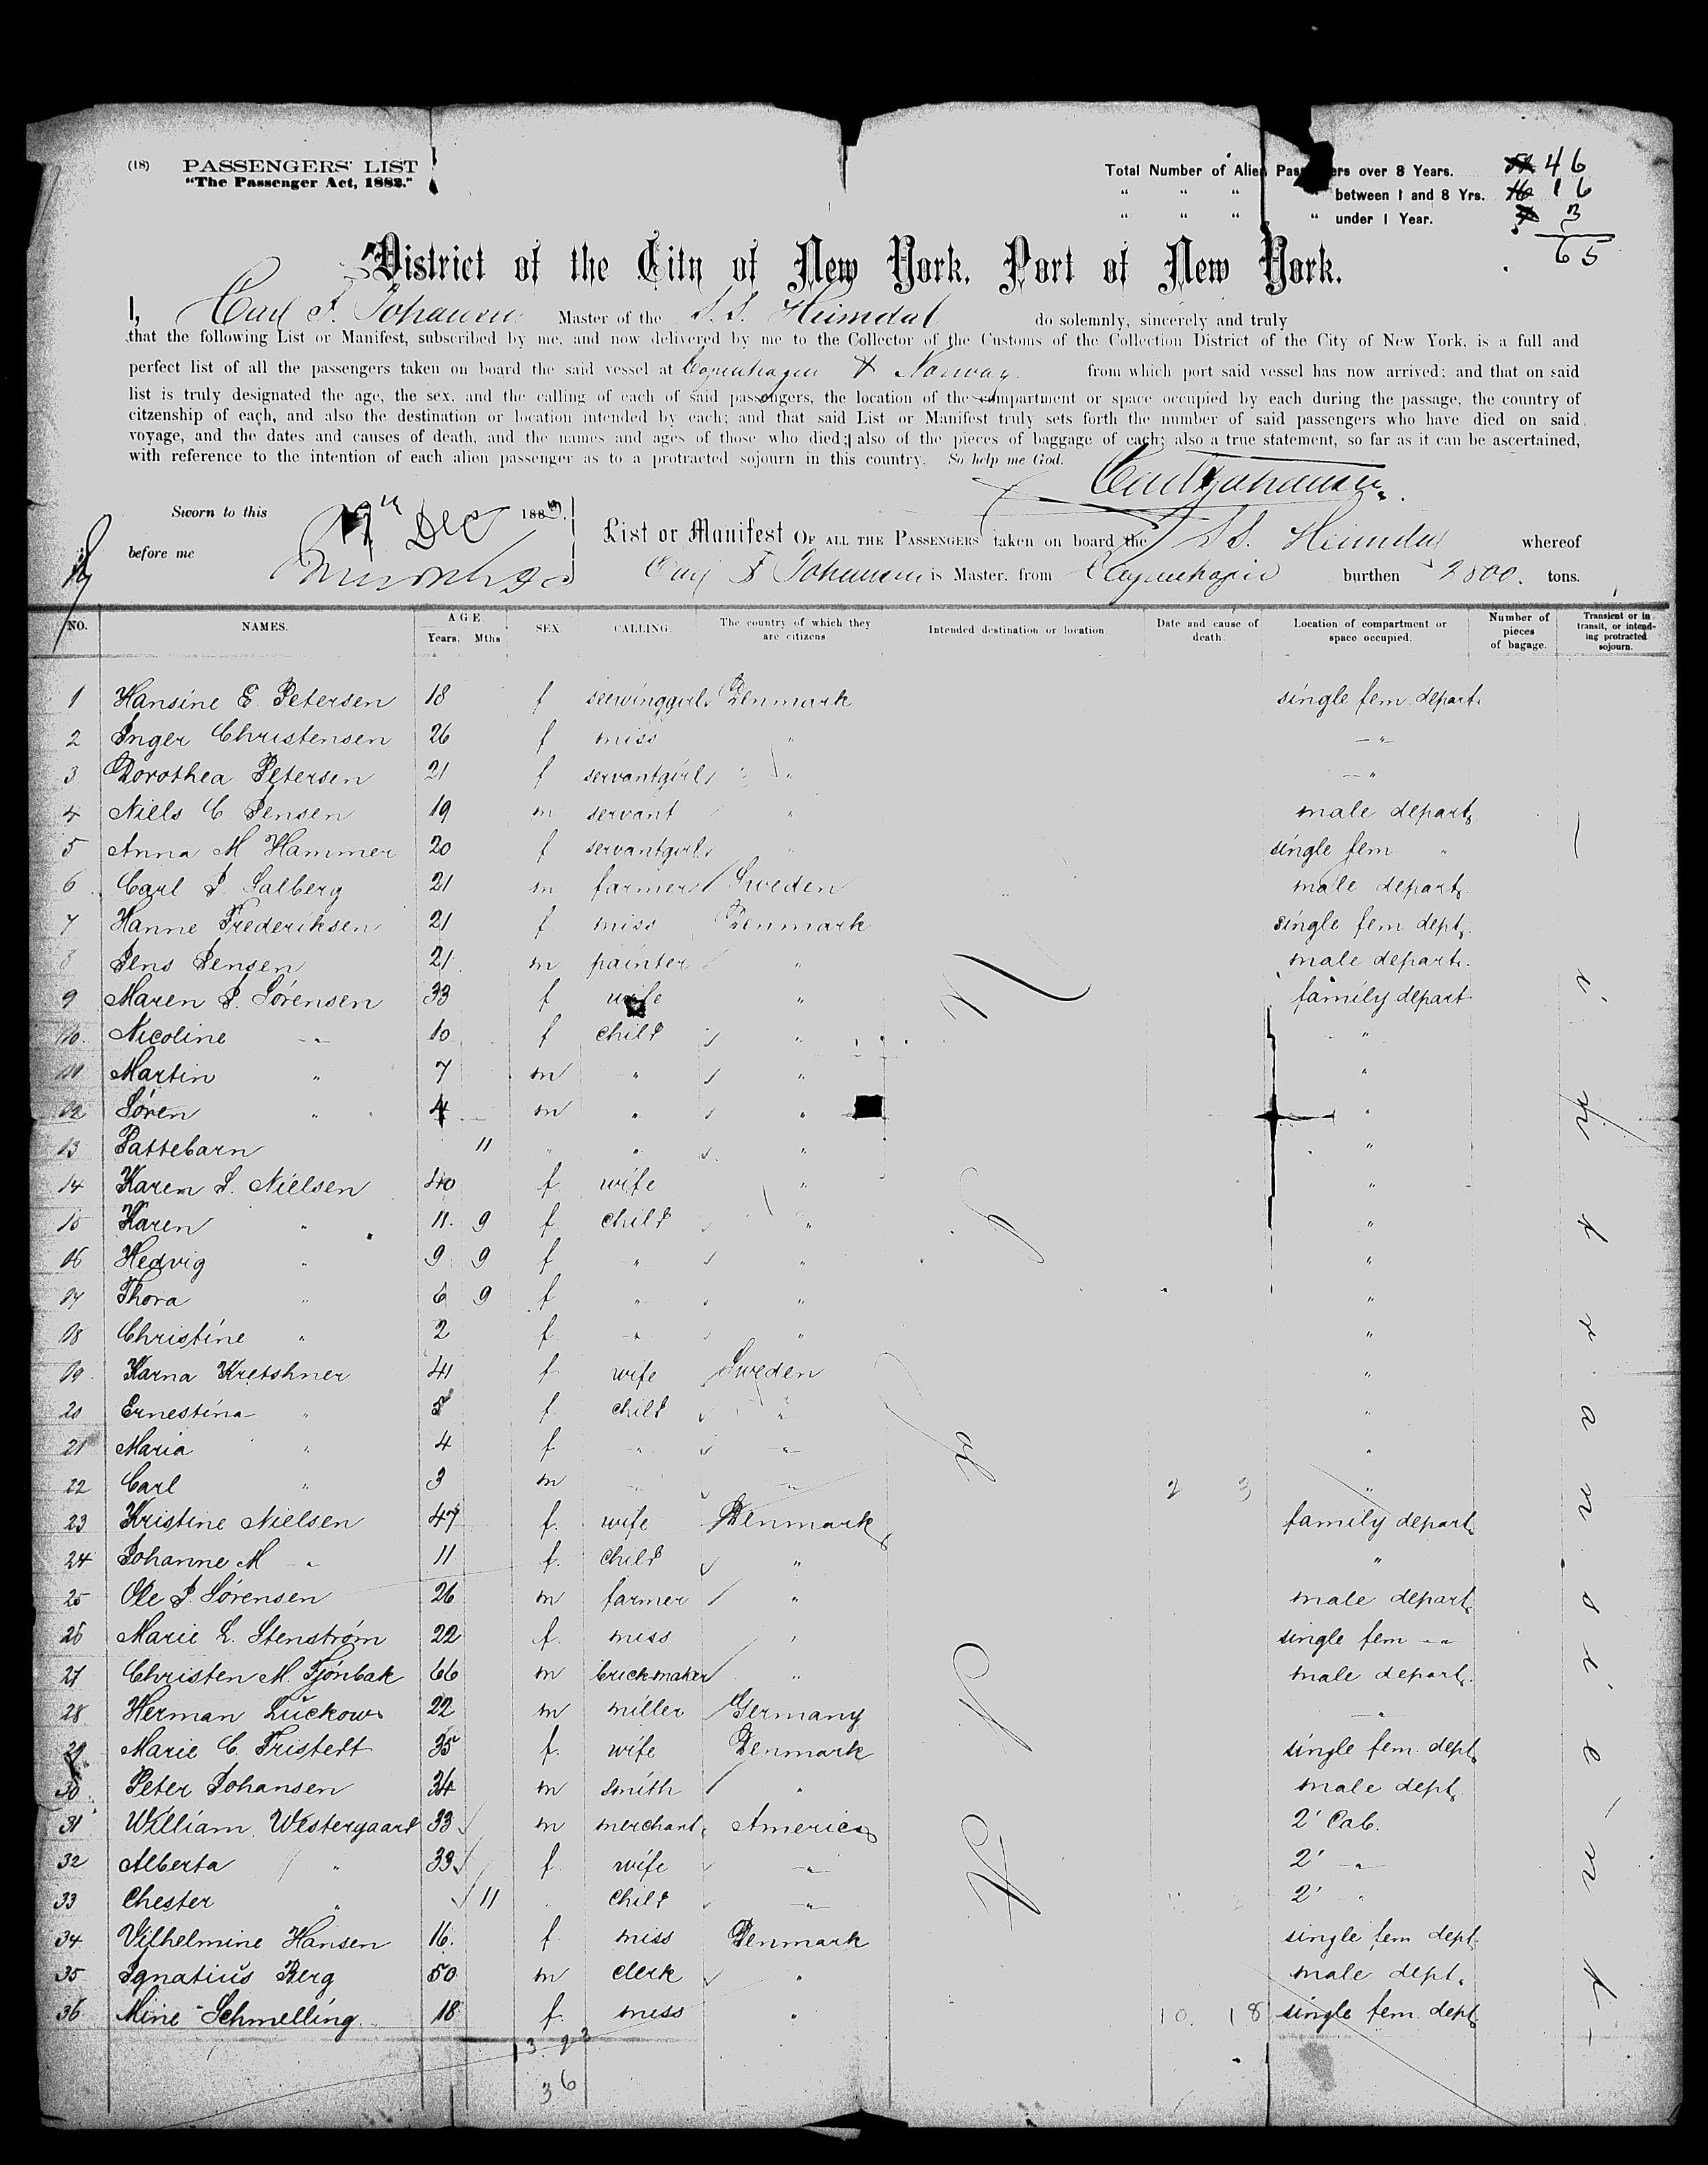 (18) PASSENGERS' LIST
"The Passenger Act, 1882."
Total Number of Alien Passengers over 8 Years. 46
" " " " between 1 and 8 Yrs. 16
" " " " under 1 Year. 3
65
District of the City of New York, Port of New York.
I, Carl F. Johansen Master of the S.S. Heimdal do solemnly, sincerely and truly
that the following List or Manifest, subscribed by me, and now delivered by me to the Collector of the Customs of the Collection District of the City of New York, is a full and
perfect list of all the passengers taken on board the said vessel at Copenhagen & Norway from which port said vessel has now arrived; and that on said
list is truly designated the age, the sex, and the calling of each of said passengers, the location of the compartment or space occupied by each during the passage, the country of
citzenship of each, and also the destination or location intended by each; and that said List or Manifest truly sets forth the number of said passengers who have died on said
voyage, and the dates and causes of death, and the names and ages of those who died; also of the pieces of baggage of each; also a true statement, so far as it can be ascertained,
with reference to the intention of each alien passenger as to a protracted sojourn in this country. So help me God.
Carl F Johansen
Sworn to this Dec 188
before me
List or Manifest OF ALL THE PASSENGERS taken on board the S.S. Heimdal whereof
Carl F Johansen is Master, from Copenhagen burthen 2800. tons.
NO. NAMES. AGE Years. Mths SEX CALLING. The country of which they are citizens Intended destination or location Date and cause of death. Location of compartment or space occupied. Number of pieces of bagage. Transient or in transit, or intending protracted sojourn.
1 Hansine E. Petersen 18 f seewinggirl Denmark single fem. depart.
2 Inger Christensen 26 f miss " - " -
3 Dorothea Petersen 21 f servantgirl " - "
4 Niels C. Jensen 19 m servant " male depart.
5 Anna M Hammer 20 f servantgirl " single fem "
6 Carl J. Salberg 21 m farmer Sweden male depart.
7 Hanne Frederiksen 21 f miss Denmark single fem dept.
8 Jens Jensen 21 m painter " male depart.
9 Maren J. Sørensen 33 f wife " family depart
10 Nicoline - " - 10 f child " "
11 Martin " 7 m " " "
12 Søren " 4 m " " "
13 Pattebarn 11 " " " "
14 Karen S. Nielsen 40 f wife " "
15 Karen " 11 9 f child " "
16 Hedvig " 9 9 f " " "
17 Thora " 6 9 f " " "
18 Christine " 2 f " " "
19 Karna Kretshner 41 f wife Sweden "
20 Ernestina " 5 f child " "
21 Maria " 4 f " " "
22 Carl " 3 m " " 2 3 "
23 Kristine Nielsen 47 f. wife Denmark family depart.
24 Johanne M - " 11 f. child " "
25 Ole J. Sørensen 26 m farmer " male depart.
26 Marie L. Stenstrøm 22 f. miss " single fem - " -
27 Christen M. Fjónbak 66 m brickmaker " male depart.
28 Herman Luckow 22 m miller Germany - " -
29 Marie C. Fristedt 35 f. wife Denmark single fem. dept.
30 Peter Johansen 34 m smith " male dept.
31 William Westergaard 33 m merchant America 2' Cab.
32 Alberta " 33 f wife - " - 2' - " -
33 Chester " 11 " child - " - 2' "
34 Vilhelmine Hansen 16. f miss Denmark single fem dept.
35 Ignatius Berg 50 m clerk " male dept.
36 Mine Schmelling 18 f. miss " 10. 18 single fem dept.
13 23
36